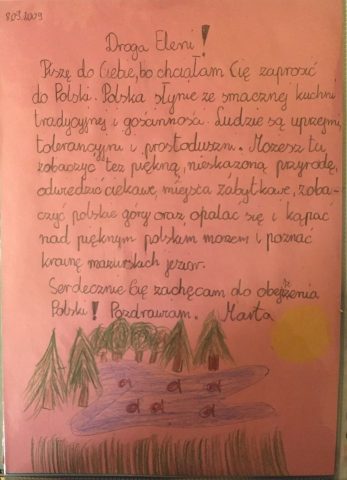 8.03.2009
Droga Eleni!
Piszę do Ciebie, bo chciałam Cię zaprosić
do Polski. Polska słynie ze smacznej kuchni
tradycyjnej i gościnności. Ludzie są uprzejmi,
tolerancyjni i prostoduszni. Możesz tu
zobaczyć też piękną, nieskażoną przyrodę,
odwiedzić ciekawe miejsca zabytkowe, zoba-
czyć polskie góry oraz opalać się i kąpać
nad pięknym polskim morzem i poznać
krainę mazurskich jezior.
Serdecznie Cię zachęcam do obejrzenia
Polski! Pozdrawiam. Marta